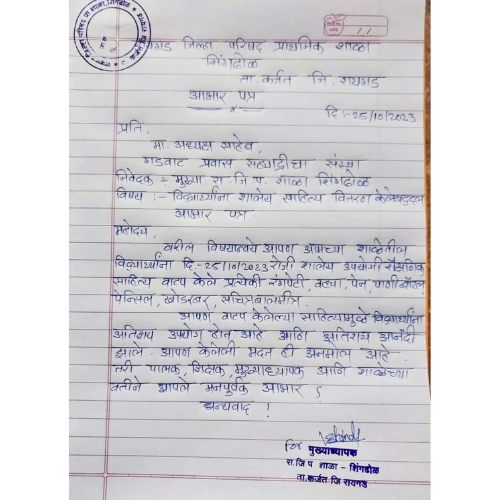 रायगड जिल्हा परिषद प्राथमिक शाळा
शिंगढोळ
ता. कर्जत जि. रायगड
आभार पत्र
दि :- 25/10/2023
प्रति,
मा. अध्यक्ष साहेब,
गडवाट प्रवास सह्याद्रीचा संस्था
निवेदक :- मुख्या. रा. जि. प. शाळा शिंगढोळ
विषय :- विद्यार्थ्यांना शालेय साहित्य वितरण केलेबद्दल
आभार पत्र
महोदय,
वरील विषयान्वये आपण आमच्या शाळेतील
विद्यार्थ्यांना दि - 25/10/2023 रोजी शालेय उपयोगी शैक्षणिक
साहित्य वाटप केले प्रत्येकी रंगपेटी, वह्या, पेन, पाणी बॉटल
पेन्सिल, खोडरबर, सचित्रबालमित्र.
आपण वाटप केलेल्या साहित्यामुळे विद्यार्थ्यांना
अतिशय उपयोग होत आहे आणि अतिशय आनंदी
झाले. आपण केलेली मदत ही अनमोल आहे.
तरी पालक, शिक्षक, मुख्याध्यापक आणि शाळेच्या
वतीने आपले मनपूर्वक आभार
धन्यवाद !
for मुख्याध्यापक
रा. जि प शाळा - शिंगढोळ
ता. कर्जत जि रायगड